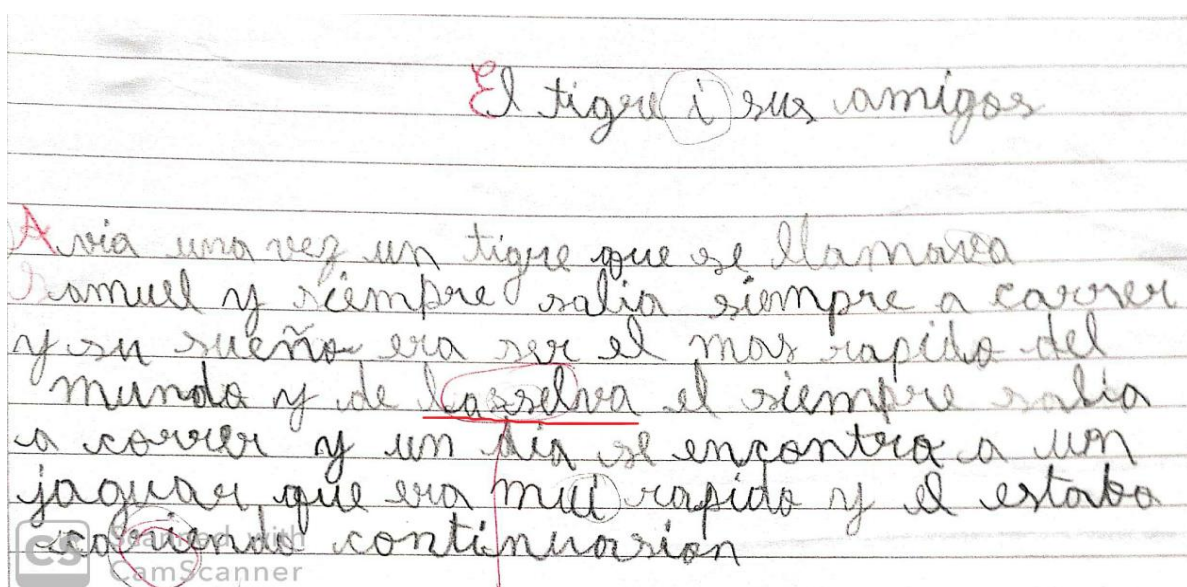 El tigre i sus amigos
Avia una vez un tigre que se llamava
Samuel y siempre salia siempre a correr
y su sueño era ser el mas rapido del
mundo y de lasselva el siempre salia
a correr y un dia se encontro a un
jaguar que era mui rapido y el estaba
coriendo continuasion
CS Scanned with
CamScanner